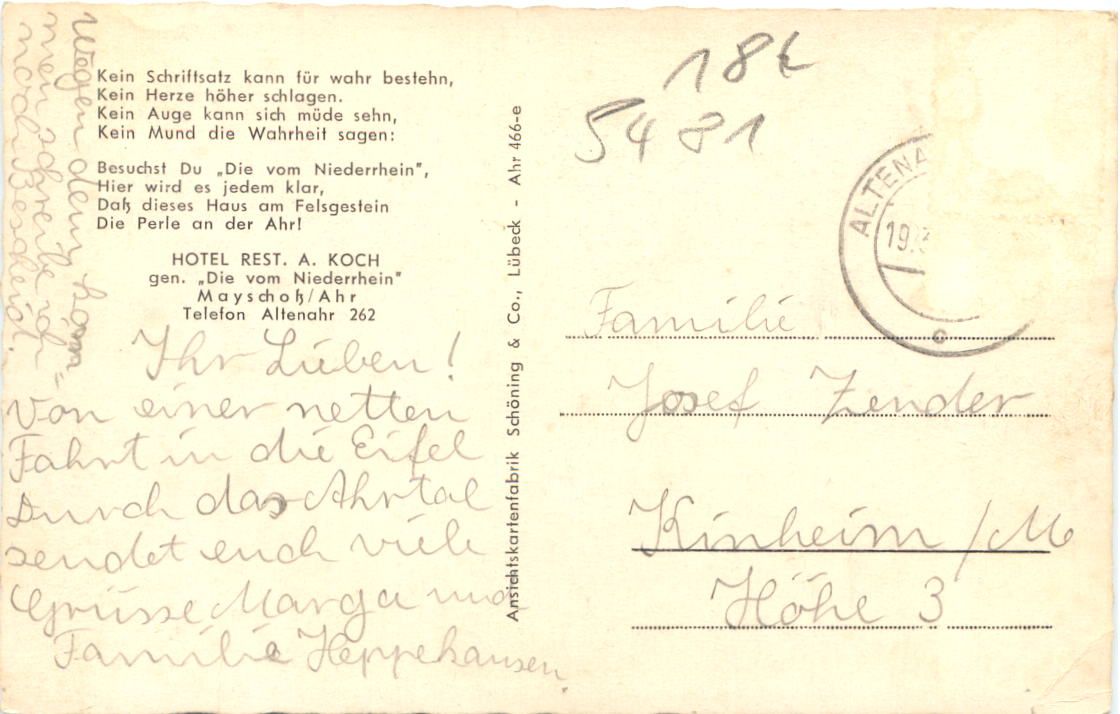 Kein Schriftsatz kann für wahr bestehn,
Kein Herze höher schlagen.
Kein Auge kann sich müde sehn,
Kein Mund die Wahrheit sagen:
Besuchst Du „Die vom Niederrhein",
Hier wird es jedem klar,
Daß dieses Haus am Felsgestein
Die Perle an der Ahr!
HOTEL REST. A. KOCH
gen. „Die vom Niederrhein"
Mayschoß/Ahr
Telefon Altenahr 262
Ihr Lieben!
Von einer netten
Fahrt in die Eifel
Durch das Ahrtal
sendet euch viele
Grüsse Marga und
Familie Heppekausen
Wegen dem Kom=
men schreibe ich
noch Bescheid.
Ansichtskartenfabrik Schöning & Co., Lübeck - Ahr 466-e
18t
5481
ALTENA
19
c
Familie
Josef Zender
Kinheim/M
Höhe 3